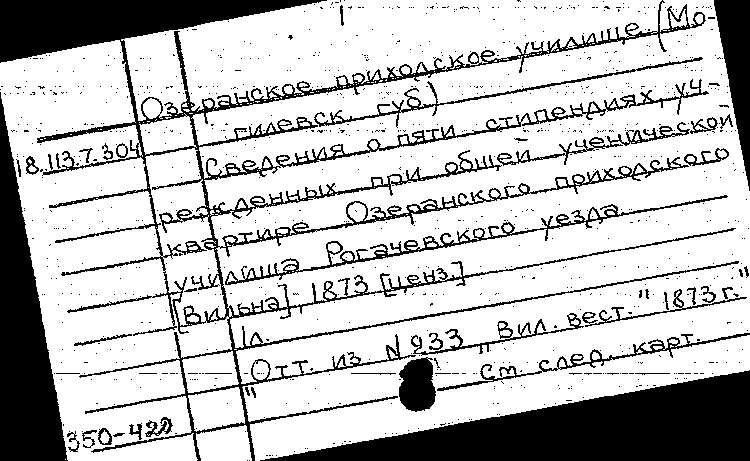 Озеранское приходское училище. (Мо-
гилевск. губ.)
18.113.7.304
Сведения о пяти стипендиях, уч-
режденных при общей ученической
квартире Озеранского приходского
училища Рогачевского уезда.
[Вильна], 1873 [ценз.]
1 л.
Отт. из N 233 "Вил. вест." 1873 г. "
" См. след. карт.
350-420